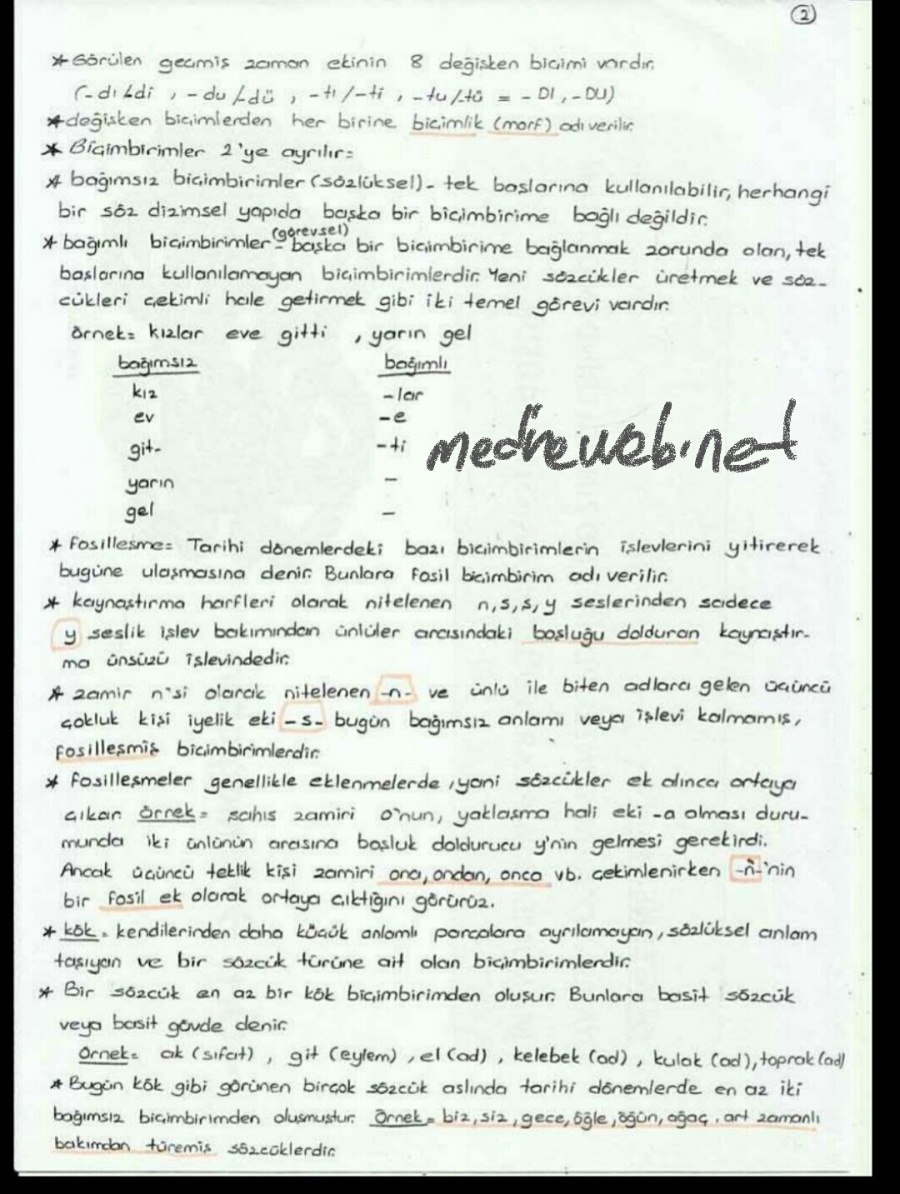 2
* Görülen geçmiş zaman ekinin 8 değişken biçimi vardır.
(-dı/-di , -du/-dü , -tı/-ti , -tu/-tü = -DI, -DU)
* değişken biçimlerden her birine biçimlik (morf) adı verilir.
* Biçimbirimler 2'ye ayrılır=
* bağımsız biçimbirimler (sözlüksel)- tek başlarına kullanılabilir, herhangi
bir söz dizimsel yapıda başka bir biçimbirime bağlı değildir.
* bağımlı biçimbirimler (görevsel) = başka bir biçimbirime bağlanmak zorunda olan, tek
başlarına kullanılamayan biçimbirimlerdir. Yeni sözcükler üretmek ve söz-
cükleri çekimli hale getirmek gibi iki temel görevi vardır.
örnek= kızlar eve gitti , yarın gel
bağımsız bağımlı
kız -lar
ev -e
git- -ti
yarın -
gel -
medreweb.net
* Fosilleşme= Tarihi dönemlerdeki bazı biçimbirimlerin işlevlerini yitirerek
bugüne ulaşmasına denir. Bunlara Fosil biçimbirim adı verilir.
* kaynaştırma harfleri olarak nitelenen n,s,ş,y seslerinden sadece
y seslik işlev bakımından ünlüler arasındaki boşluğu dolduran kaynaştır-
ma ünsüzü işlevindedir.
* zamir n'si olarak nitelenen -n- ve ünlü ile biten adlara gelen üçüncü
çokluk kişi iyelik eki -s- bugün bağımsız anlamı veya işlevi kalmamış,
Fosilleşmiş biçimbirimlerdir.
* Fosilleşmeler genellikle eklenmelerde , yani sözcükler ek alınca ortaya
çıkar. örnek= şahıs zamiri o'nun, yaklaşma hali eki -a olması duru-
munda iki ünlünün arasına boşluk doldurucu y'nin gelmesi gerekirdi.
Ancak üçüncü teklik kişi zamiri ona, ondan, onca vb. çekimlenirken -n-'nin
bir fosil ek olarak ortaya çıktığını görürüz.
* kök = kendilerinden daha küçük anlamlı parçalara ayrılamayan, sözlüksel anlam
taşıyan ve bir sözcük türüne ait olan biçimbirimlerdir.
* Bir sözcük en az bir kök biçimbirimden oluşur. Bunlara basit sözcük
veya basit gövde denir.
Örnek= ak (sıfat) , git (eylem) , el (ad) , kelebek (ad) , kulak (ad), toprak (ad)
* Bugün kök gibi görünen birçok sözcük aslında tarihi dönemlerde en az iki
bağımsız biçimbirimden oluşmuştur. Örnek= biz, siz, gece, öğle, öğün, ağaç. art zamanlı
bakımdan türemiş sözcüklerdir.